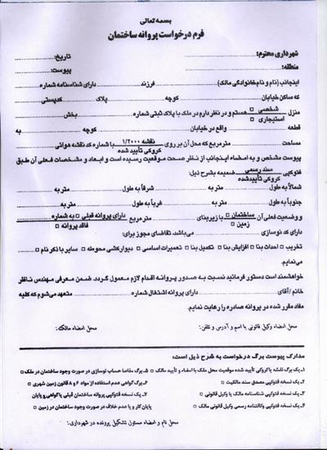 بسمه تعالی
فرم درخواست پروانه ساختمان
شهرداری محترم:
تاریخ:
منطقه:
پیوست:
اینجانب (نام و نام خانوادگی مالک) فرزند دارای شناسنامه شماره
که ساکن خیابان کوچه پلاک کدپستی
منزل شخصی استیجاری هستم و در نظر دارم در ملک با پلاک ثبتی شماره بخش
قطعه واقع در خیابان کوچه به
مساحت مترمربع که محل آن بر روی نقشه ۱/۲۰۰۰ کروکی تایید شده که نقشه هوائی
پیوست مشخص و به امضاء اینجانب از نظر صحت موقعیت رسیده است و ابعاد و مشخصات فعلی آن طبق
فتوکپی سند رسمی کروکی تاییدشده ضمیمه بشرح ذیل:
شمالاً به طول متر به شرقاً به طول متر به
جنوباً به طول متر به غرباً به طول متر به
و وضعیت فعلی آن ساختمان زمین با زیربنای متر مربع دارای پروانه قبلی به شماره فاقد پروانه
دارای کد نوسازی می باشد، تقاضای مجوز برای:
تخریب احداث بنا افزایش بنا تکمیل بنا تعمیرات اساسی دیوارکشی محوطه سایر با ذکر نام
می نمایم.
خواهشمند است دستور فرمائید نسبت به صدور پروانه اقدام لازم معمول گردد. ضمن معرفی مهندس ناظر
خانم / آقای دارای پروانه اشتغال شماره متعهد می شوم که کلیه
مفاد مقرر شده در پروانه صادره را رعایت نمایم.
محل امضاء وکیل قانونی با اسم و آدرس و تلفن:
محل امضاء مالک:
مدارک پیوست برگ درخواست به شرح ذیل است:
۲ـ یک نسخه فتوکپی مصدق سند مالکیت
۳ـ یک نسخه فتوکپی شناسنامه مالک یا وکیل قانونی
محل نام و امضاء مسئول تشکیل پرونده در شهرداری: